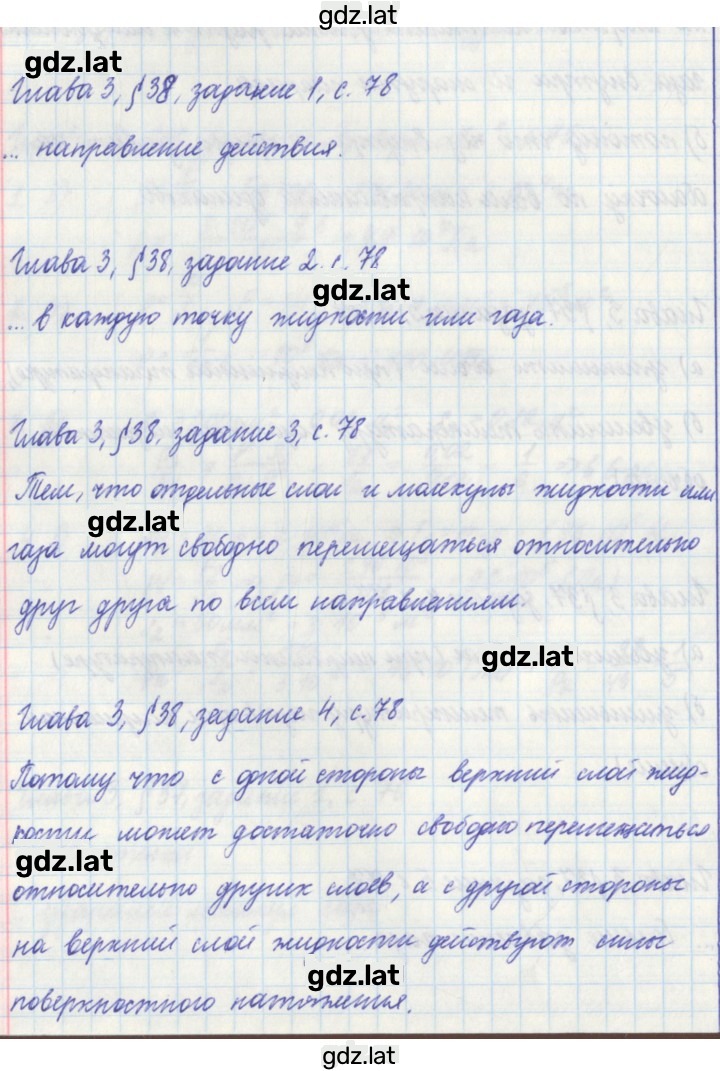 gdz.lat
gdz.lat
Глава 3, §38, задание 1, с. 78
... направление действия.
Глава 3, §38, задание 2. с. 78
gdz.lat
... в каждую точку жидкости или газа.
Глава 3, §38, задание 3, с. 78
Тем, что отдельные слои и молекулы жидкости или
gdz.lat
газа могут свободно перемещаться относительно
друг друга по всем направлениям
gdz.lat
Глава 3, §38, задание 4, с. 78
Потому что с одной стороны верхний слой жид-
кости может достаточно свободно перемещаться
gdz.lat
относительно других слоев, а с другой стороны
на верхний слой жидкости действуют силы
gdz.lat
поверхностного натяжения.
gdz.lat